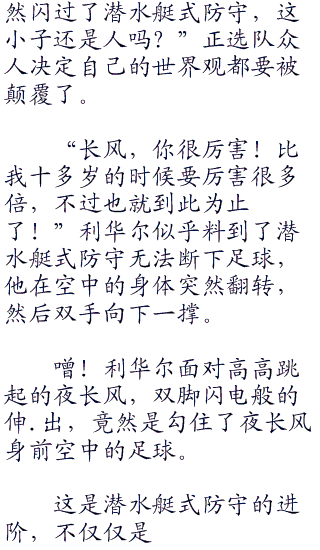 然闪过了潜水艇式防守，这
小子还是人吗？”正选队众
人决定自己的世界观都要被
颠覆了。
“长风，你很厉害！比
我十多岁的时候要厉害很多
倍，不过也就到此为止
了！”利华尔似乎料到了潜
水艇式防守无法断下足球，
他在空中的身体突然翻转，
然后双手向下一撑。
噌！利华尔面对高高跳
起的夜长风，双脚闪电般的
伸.出，竟然是勾住了夜长风
身前空中的足球。
这是潜水艇式防守的进
阶，不仅仅是